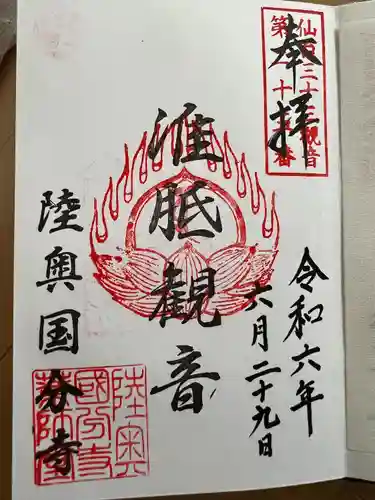 奉拝
三十三観音
第二十番
令和六年
六月二十九日
准胝観音
陸奥国分寺
陸奥
國分寺